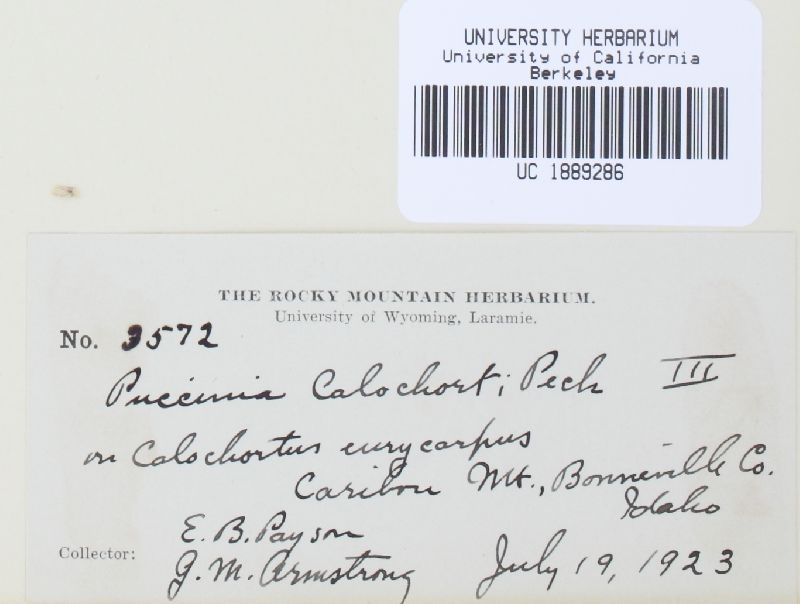 UNIVERSITY HERBARIUM
University of California
Berkeley
UC 1889286
THE ROCKY MOUNTAIN HERBARIUM.
University of Wyoming, Laramie.
No. 3572
Puccinia Calochorti Peck III
on Calochortus eurycarpus
Caribou Mt., Bonneville Co.
Idaho
E. B. Payson
Collector:
G. M. Armstrong July 19, 1923